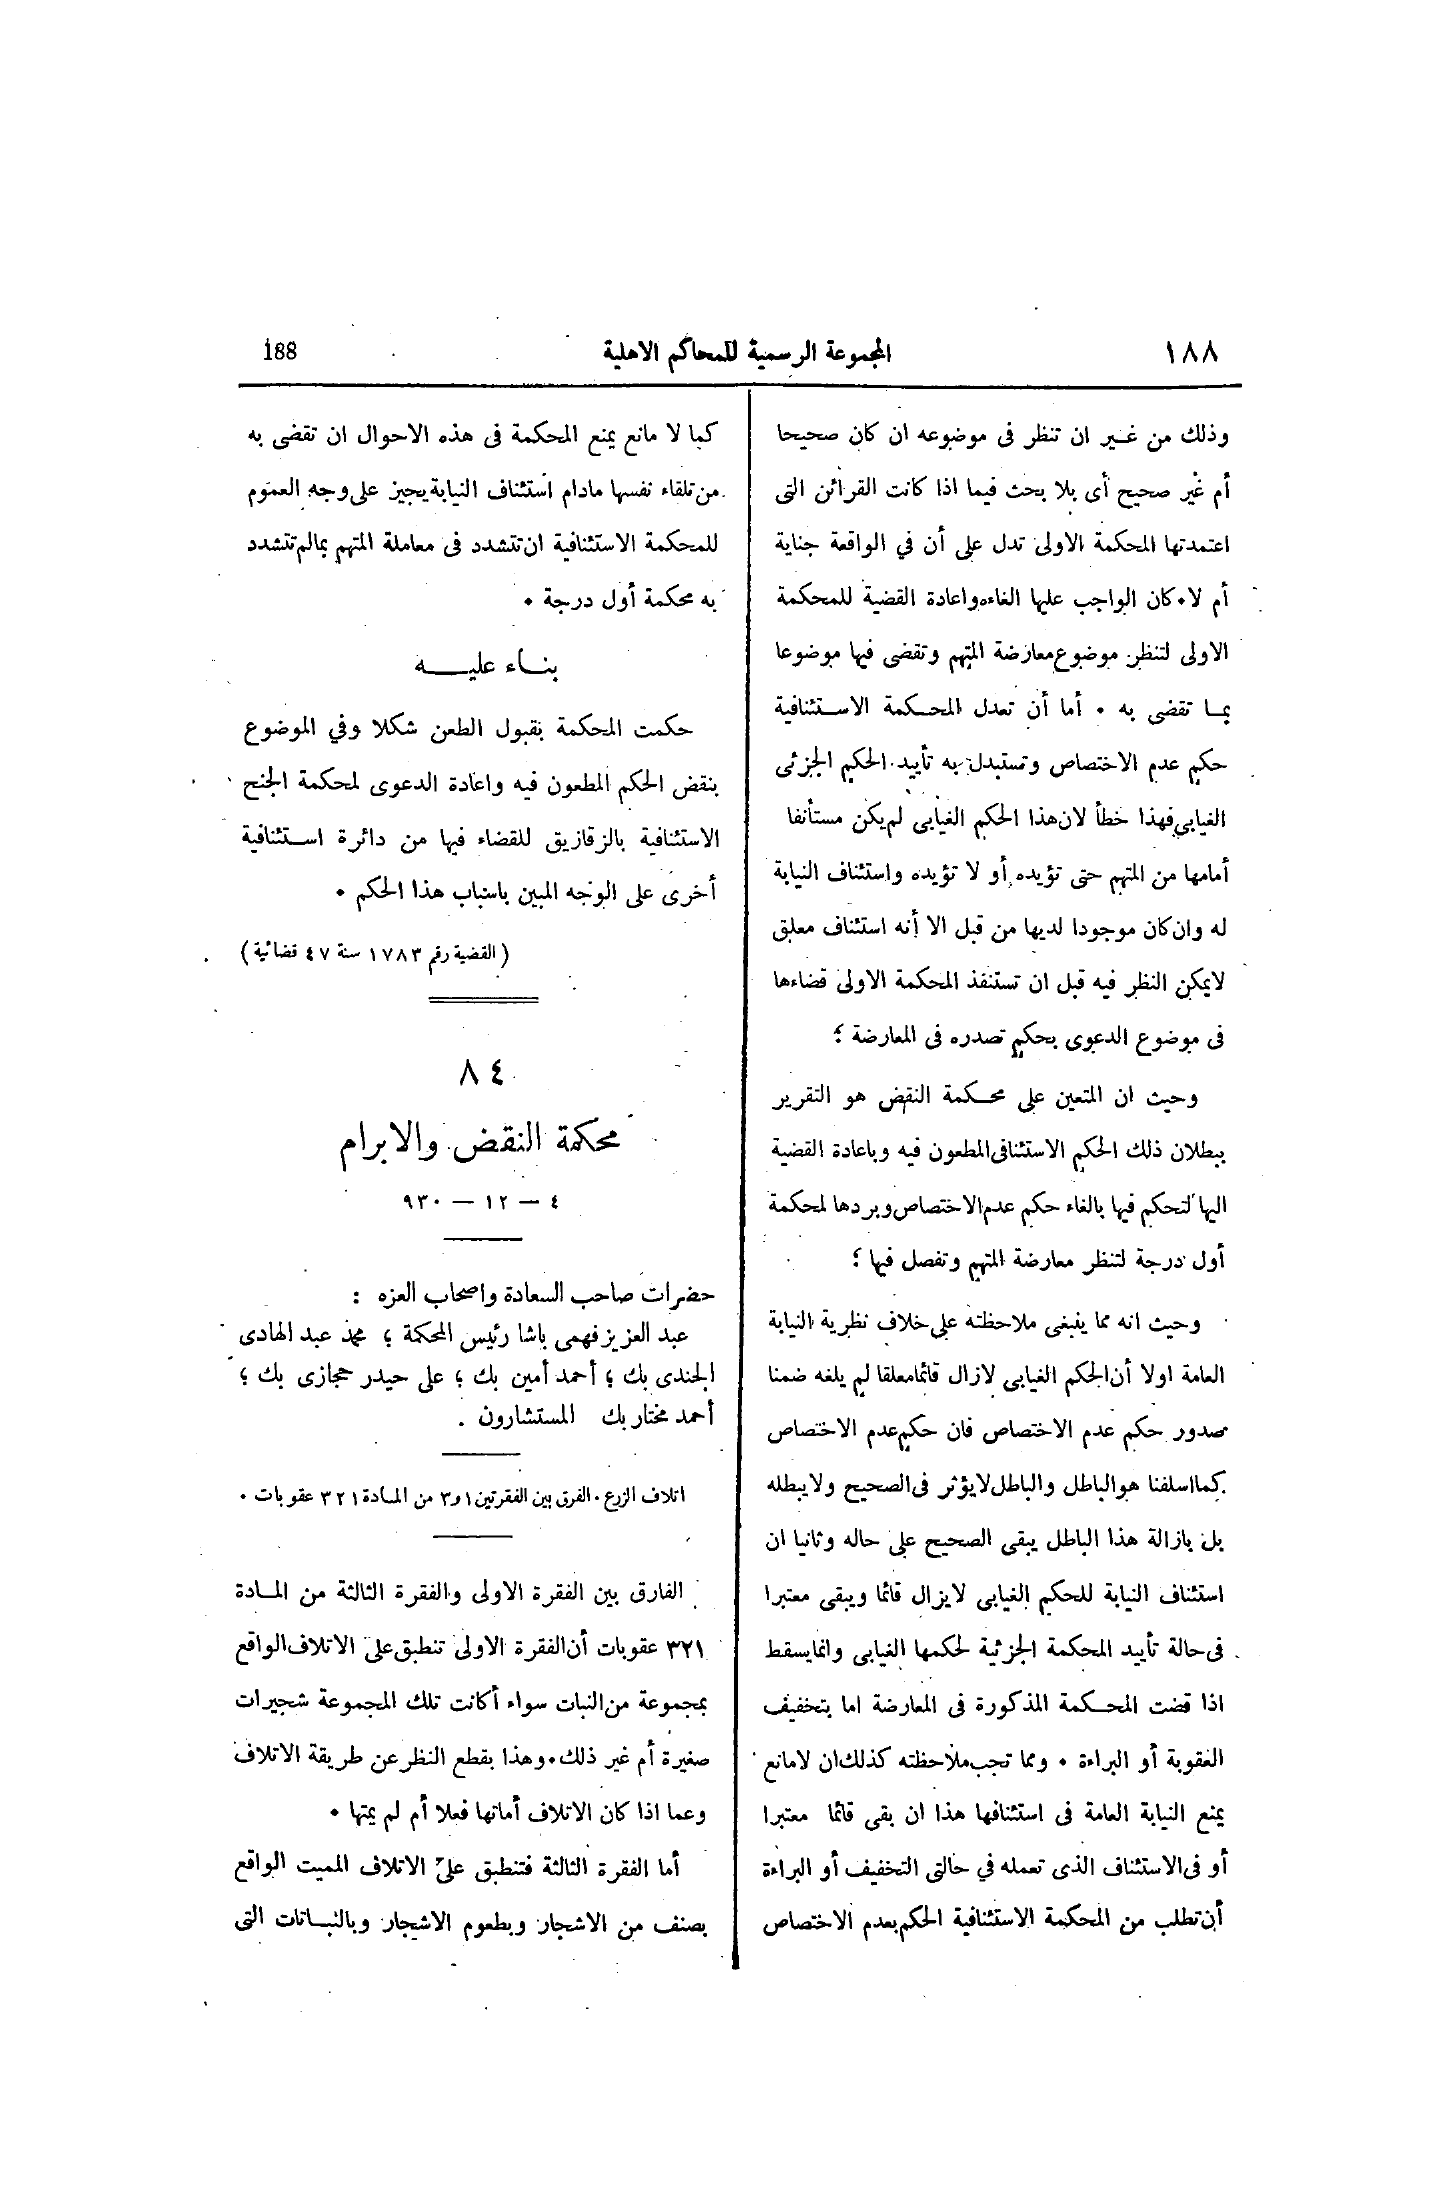 ١٨٨
المجموعة الرسمية للمحاكم الاهلية
188
وذلك من غير ان تنظر فى موضوعه ان كان صحيحا
أم غير صحيح أى بلا بحث فيما اذا كانت القرائن التى
اعتمدتها المحكمة الاولى تدل على أن في الواقعة جناية
أم لا٠كان الواجب عليها الغاءه واعادة القضية للمحكمة
الاولى لتنظر موضوع معارضة المتهم وتقضى فيها موضوعا
بما تقضى به ٠ أما أن تعدل المحكمة الاستئنافية
حكم عدم الاختصاص وتستبدل به تأييد الحكم الجزئى
الغيابي فهذا خطأ لان هذا الحكم الغيابى لم يكن مستأنفا
أمامها من المتهم حتى تؤيده أو لا تؤيده واستئناف النيابة
له وان كان موجودا لديها من قبل الا أنه استئناف معلق
لا يمكن النظر فيه قبل ان تستنفذ المحكمة الاولى قضاءها
فى موضوع الدعوى بحكم تصدره فى المعارضة ؛
وحيث ان المتعين على محكمة النقض هو التقرير
ببطلان ذلك الحكم الاستئنافى المطعون فيه وباعادة القضية
اليها لتحكم فيها بالغاء حكم عدم الاختصاص وبردها لمحكمة
أول درجة لتنظر معارضة المتهم وتفصل فيها ؛
وحيث انه مما ينبغى ملاحظته على خلاف نظرية النيابة
العامة اولا أن الحكم الغيابى لازال قائما معلقا لم يلغه ضمنا
صدور حكم عدم الاختصاص فان حكم عدم الاختصاص
كما اسلفنا هو الباطل والباطل لا يؤثر فى الصحيح ولا يبطله
بل بازالة هذا الباطل يبقى الصحيح على حاله وثانيا ان
استئناف النيابة للحكم الغيابى لا يزال قائما ويبقى معتبرا
فى حالة تأييد المحكمة الجزئية لحكمها الغيابى وانما يسقط
اذا قضت المحكمة المذكورة فى المعارضة اما بتخفيف
العقوبة أو البراءة ٠ ومما تجب ملاحظته كذلك ان لا مانع
يمنع النيابة العامة فى استئنافها هذا ان بقى قائما معتبرا
أو فى الاستئناف الذى تعمله في حالتى التخفيف أو البراءة
أن تطلب من المحكمة الاستئنافية الحكم بعدم الاختصاص
كما لا مانع يمنع المحكمة فى هذه الاحوال ان تقضى به
من تلقاء نفسها مادام استئناف النيابة يجيز على وجه العموم
للمحكمة الاستئنافية ان تتشدد فى معاملة المتهم بما لم تتشدد
به محكمة أول درجة ٠
بناء عليه
حكمت المحكمة بقبول الطعن شكلا وفي الموضوع
بنقض الحكم المطعون فيه واعادة الدعوى لمحكمة الجنح
الاستئنافية بالزقازيق للقضاء فيها من دائرة استئنافية
أخرى على الوجه المبين باسباب هذا الحكم ٠
(القضية رقم ١٧٨٣ سنة ٤٧ قضائية)
٨٤
محكمة النقض والابرام
٤ — ١٢ — ٩٣٠
حضرات صاحب السعادة واصحاب العزه :
عبد العزيز فهمى باشا رئيس المحكمة ؛ محمد عبد الهادى
الجندى بك ؛ أحمد أمين بك ؛ على حيدر حجازى بك ؛
أحمد مختار بك المستشارون .
اتلاف الزرع ٠ الفرق بين الفقرتين ١ و٣ من المادة ٣٢١ عقوبات ٠
الفارق بين الفقرة الاولى والفقرة الثالثة من المادة
٣٢١ عقوبات أن الفقرة الاولى تنطبق على الاتلاف الواقع
بمجموعة من النبات سواء أكانت تلك المجموعة شجيرات
صغيرة أم غير ذلك٠وهذا بقطع النظر عن طريقة الاتلاف
وعما اذا كان الاتلاف أماتها فعلا أم لم يمتها ٠
أما الفقرة الثالثة فتنطبق على الاتلاف المميت الواقع
بصنف من الاشجار وبطعوم الاشجار وبالنباتات التى